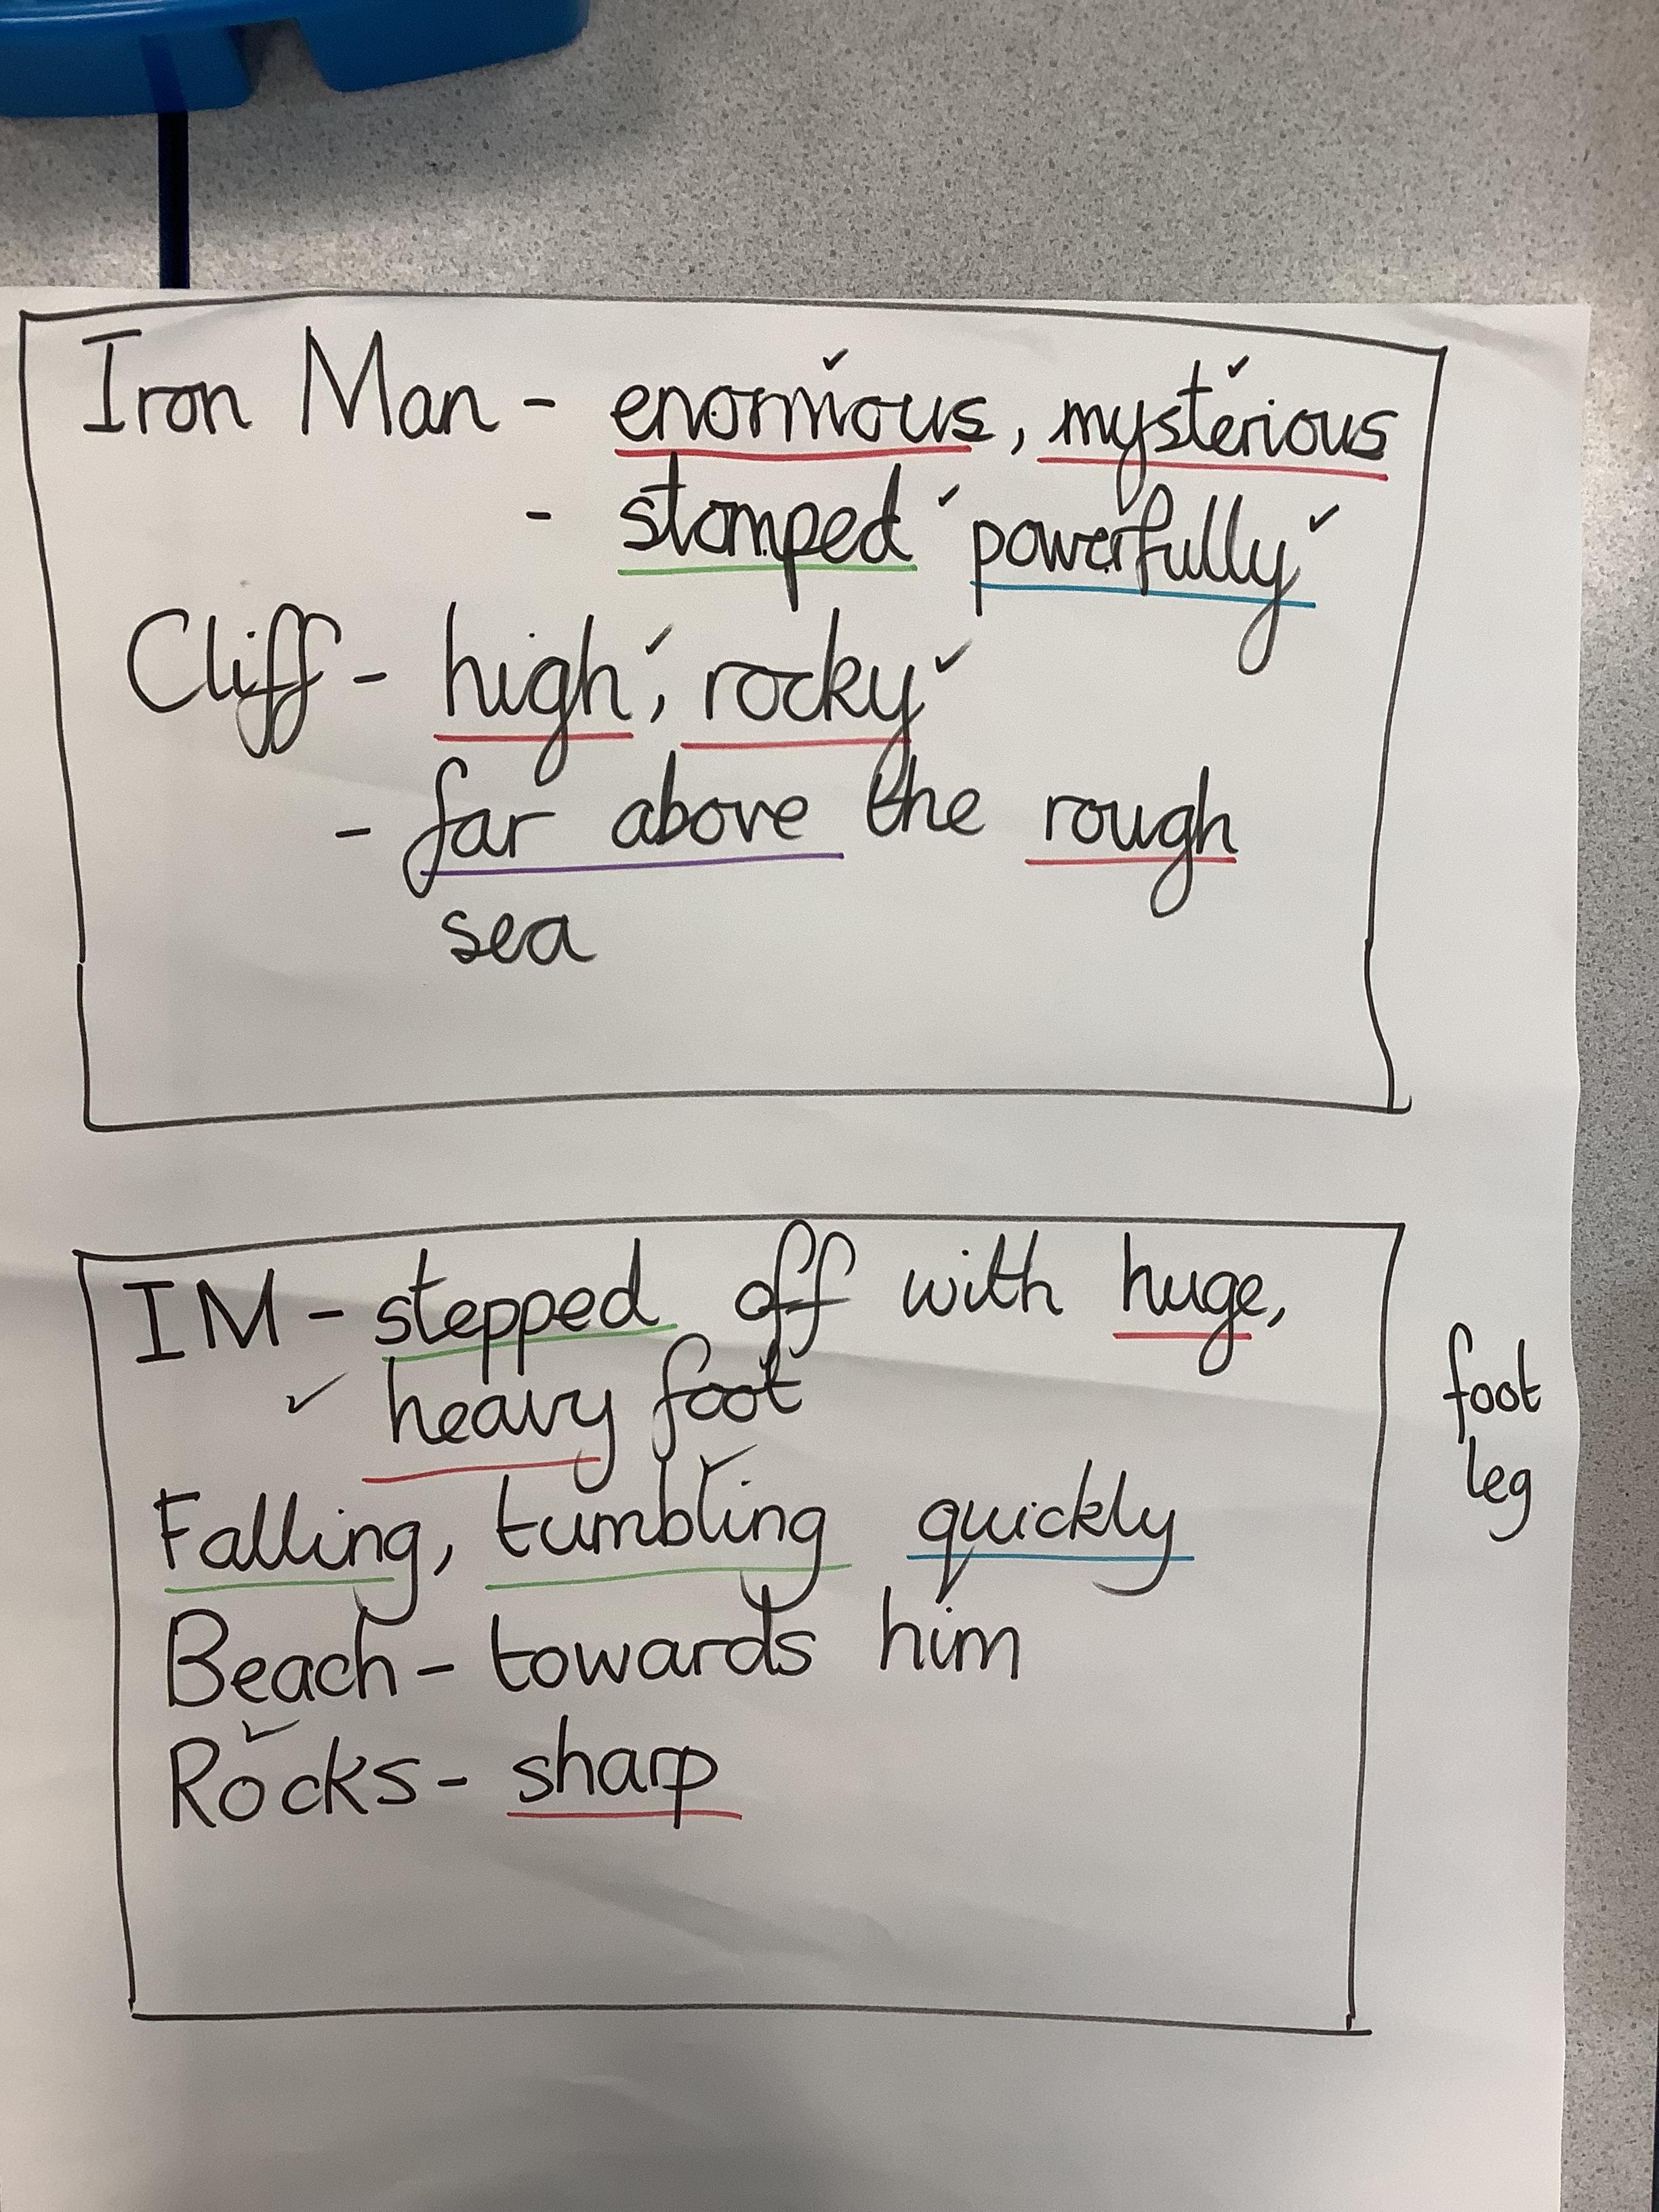 Iron Man - enormous, mysterious
- stomped powerfully
Cliff - high, rocky
- far above the rough
sea
IM - stepped off with huge,
heavy foot
Falling, tumbling quickly
Beach - towards him
Rocks - sharp
foot
leg